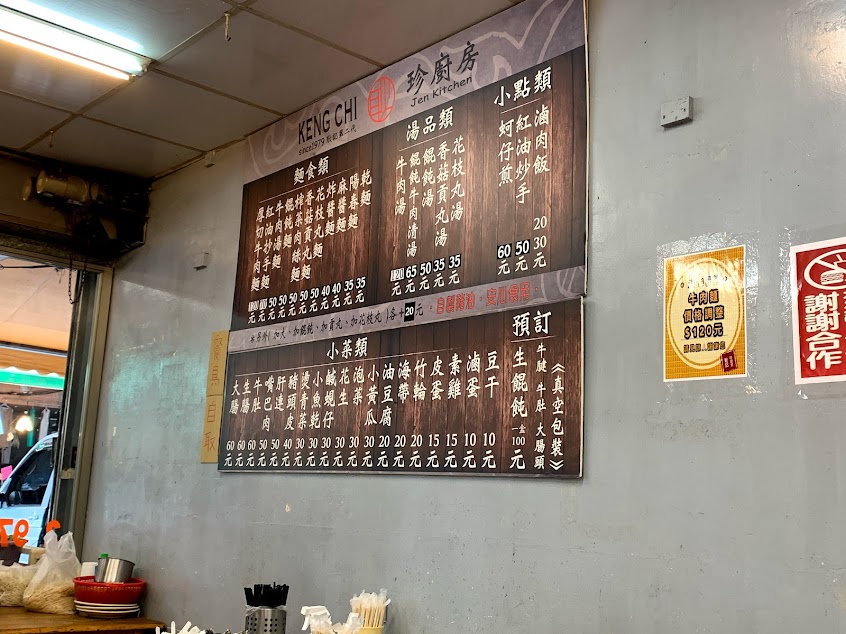 KENG CHI
since1979 耿記第二代
珍廚房
Jen Kitchen
小點類
滷肉飯 20 30元
紅油炒手 50元
蚵仔煎 60元
湯品類
花枝丸湯 35元
香菇貢丸湯 35元
餛飩湯 50元
餛飩牛肉清湯 65元
牛肉湯 元
麵食類
乾麵 35元
陽春麵 35元
麻醬麵 40元
炸醬麵 40元
花枝丸麵 50元
香菇貢丸麵 50元
榨菜肉絲麵 50元
餛飩麵 50元
牛肉湯麵 50元
紅油炒手麵 元
厚切牛肉麵 元
※另外(加大、加餛飩、加貢丸、加花枝丸)各+20元。自製豬油，安心食用。
預訂
《真空包裝》
牛腱 牛肚 大腸頭
生餛飩 一盒100元
小菜類
豆干 10元
滷蛋 10元
素雞 15元
皮蛋 15元
竹輪 20元
海帶 20元
油豆腐 20元
小黃瓜 30元
泡菜 30元
花生 30元
鹹蜆仔 30元
小魚乾 30元
燙青菜 30元
豬頭皮 40元
肝連 50元
嘴巴肉 50元
牛肚 60元
生腸 60元
大腸 60元
餐具自取
牛肉麵
價格調整
$120元
謝謝合作